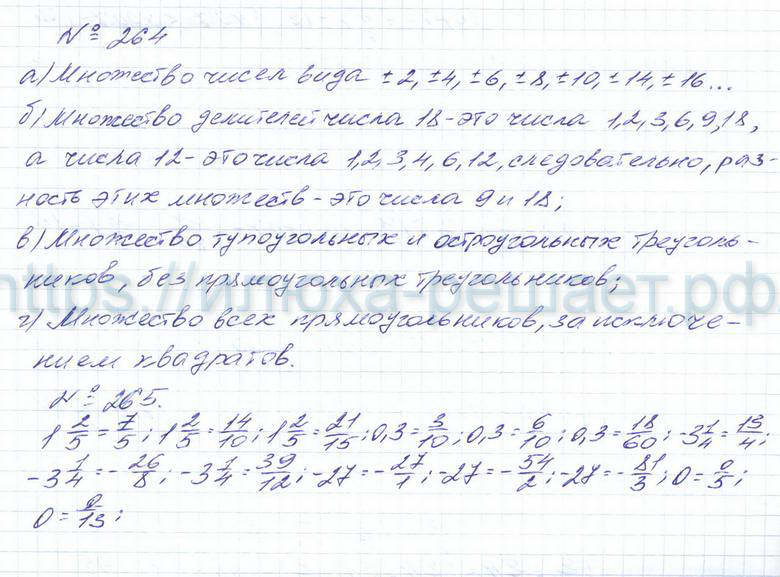 № 264
а) Множество чисел вида ±2, ±4, ±6, ±8, ±10, ±14, ±16...
б) Множество делителей числа 18 - это числа 1,2,3,6,9,18,
а числа 12 - это числа 1,2,3,4,6,12, следовательно, раз-
ность этих множеств - это числа 9 и 18;
в) Множество тупоугольных и остроугольных треуголь-
ников, без прямоугольных треугольников;
https://илюха-решает.рф
г) Множество всех прямоугольников, за исключе-
нием квадратов.
№ 265.
1 2/5 = 7/5; 1 2/5 = 14/10; 1 2/5 = 21/15; 0,3 = 3/10; 0,3 = 6/10; 0,3 = 18/60; -3 1/4 = 13/4;
-3 1/4 = -26/8; -3 1/4 = 39/12; -27 = -27/1; -27 = -54/2; -27 = -81/3; 0 = 0/5;
0 = 0/13;